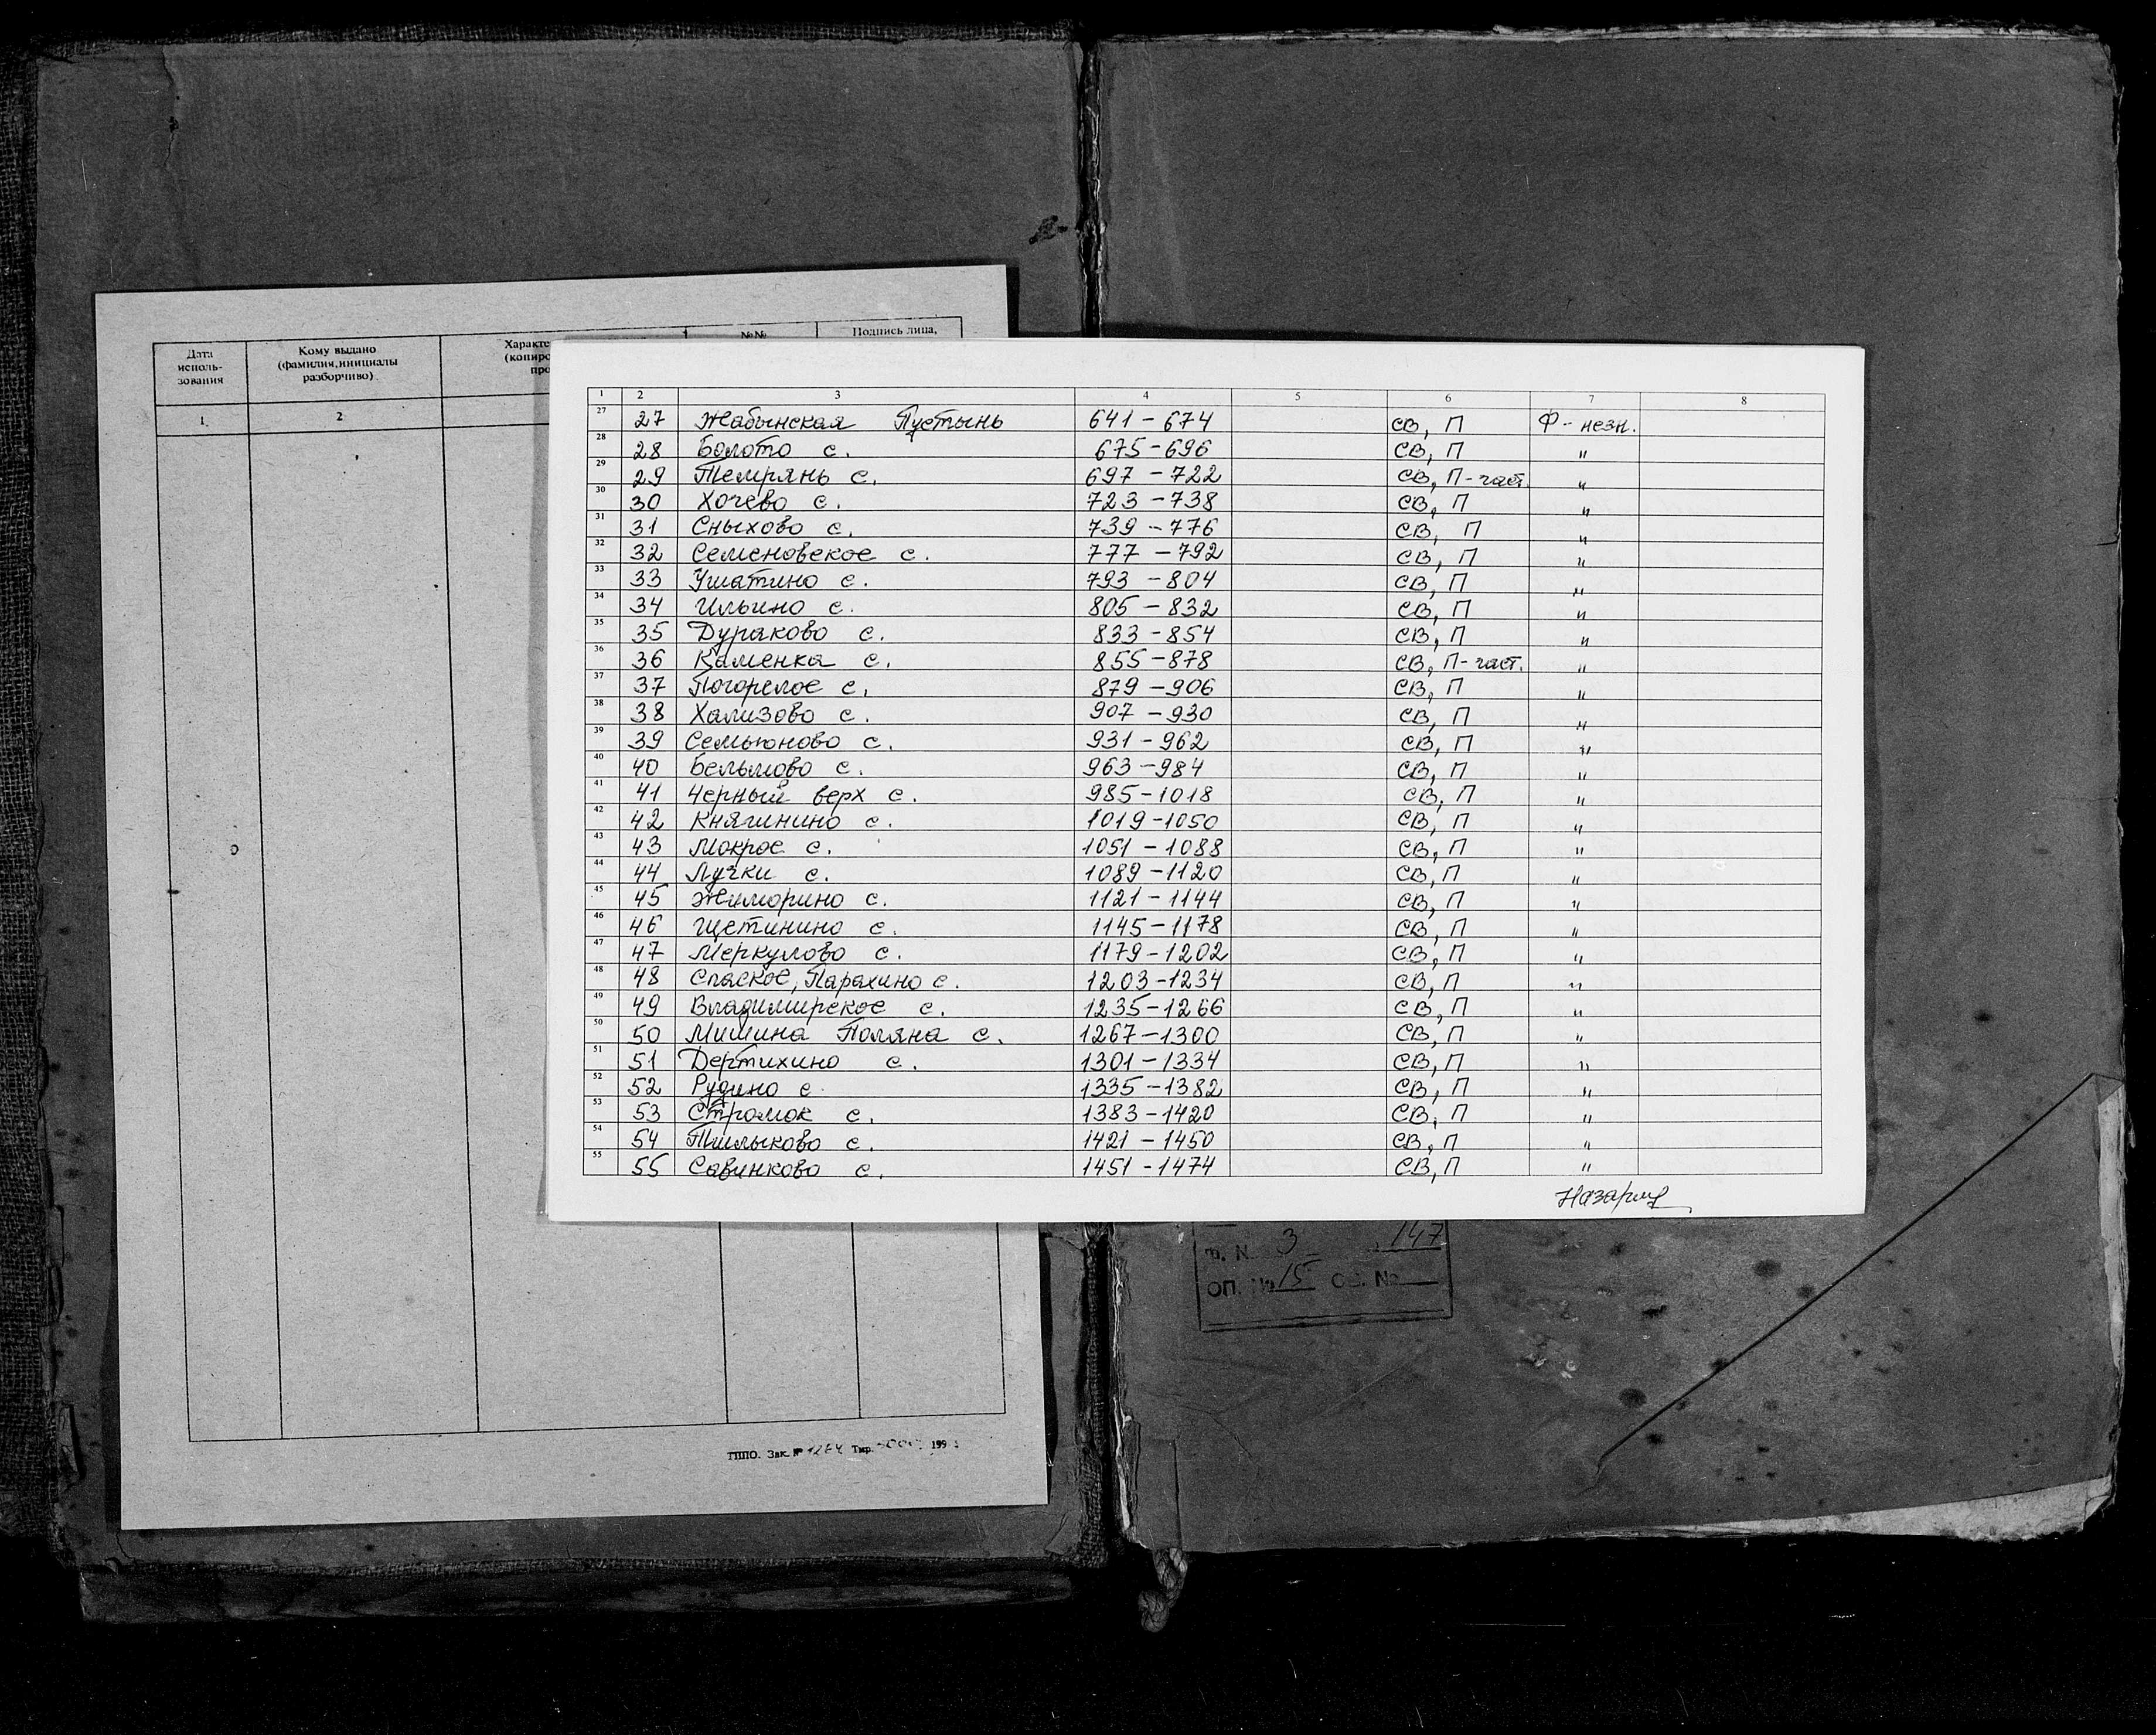 Дата исполь- зования
Кому выдано (фамилия, инициалы разборчиво)
№№
Подпись лица,
1.
2
1 2 3 4 5 6 7 8
27 27 Жабынская Пустынь 641 - 674 СВ, П Ф - незн.
28 28 Болото с. 675 - 696 СВ, П "
29 29 Темрянь с. 697 - 722 СВ, П - част. "
30 30 Хочево с. 723 - 738 СВ, П "
31 31 Сныхово с. 739 - 776 СВ, П "
32 32 Семеновское с. 777 - 792 СВ, П "
33 33 Ушатино с. 793 - 804 СВ, П "
34 34 Ильино с. 805 - 832 СВ, П "
35 35 Дураково с. 833 - 854 СВ, П "
36 36 Каменка с. 855 - 878 СВ, П - част. "
37 37 Погорелое с. 879 - 906 СВ, П "
38 38 Хализово с. 907 - 930 СВ, П "
39 39 Семьюново с. 931 - 962 СВ, П "
40 40 Бельмово с. 963 - 984 СВ, П "
41 41 Черный верх с. 985 - 1018 СВ, П "
42 42 Княгинино с. 1019 - 1050 СВ, П "
43 43 Мокрое с. 1051 - 1088 СВ, П "
44 44 Лучки с. 1089 - 1120 СВ, П "
45 45 Жиморино с. 1121 - 1144 СВ, П "
46 46 Щетинино с. 1145 - 1178 СВ, П "
47 47 Меркулово с. 1179 - 1202 СВ, П "
48 48 Спаское, Парахино с. 1203 - 1234 СВ, П "
49 49 Владимирское с. 1235 - 1266 СВ, П "
50 50 Мишина Поляна с. 1267 - 1300 СВ, П "
51 51 Дертихино с. 1301 - 1334 СВ, П "
52 52 Рудино с. 1335 - 1382 СВ, П "
53 53 Стромок с. 1383 - 1420 СВ, П "
54 54 Пшлыково с. 1421 - 1450 СВ, П "
55 55 Савинково с. 1451 - 1474 СВ, П "
Ф. N. 3 147
ОП. № 15 №
Зак. № Тир.